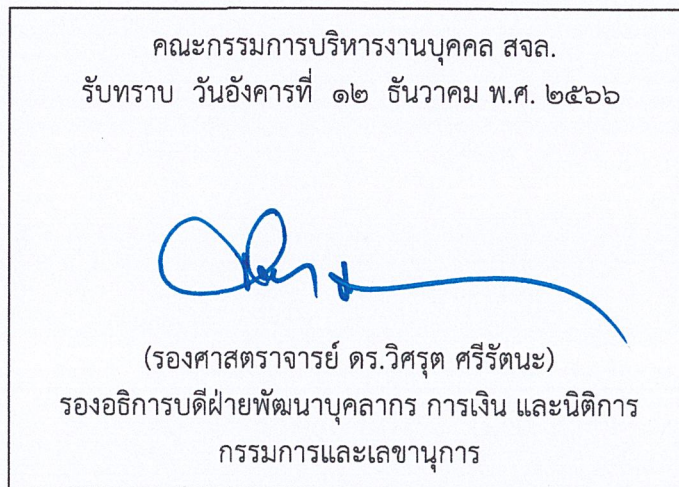 คณะกรรมการบริหารงานบุคคล สจล.
รับทราบ วันอังคารที่ ๑๒ ธันวาคม พ.ศ. ๒๕๖๖
(รองศาสตราจารย์ ดร.วิศรุต ศรีรัตนะ)
รองอธิการบดีฝ่ายพัฒนาบุคลากร การเงิน และนิติการ
กรรมการและเลขานุการ